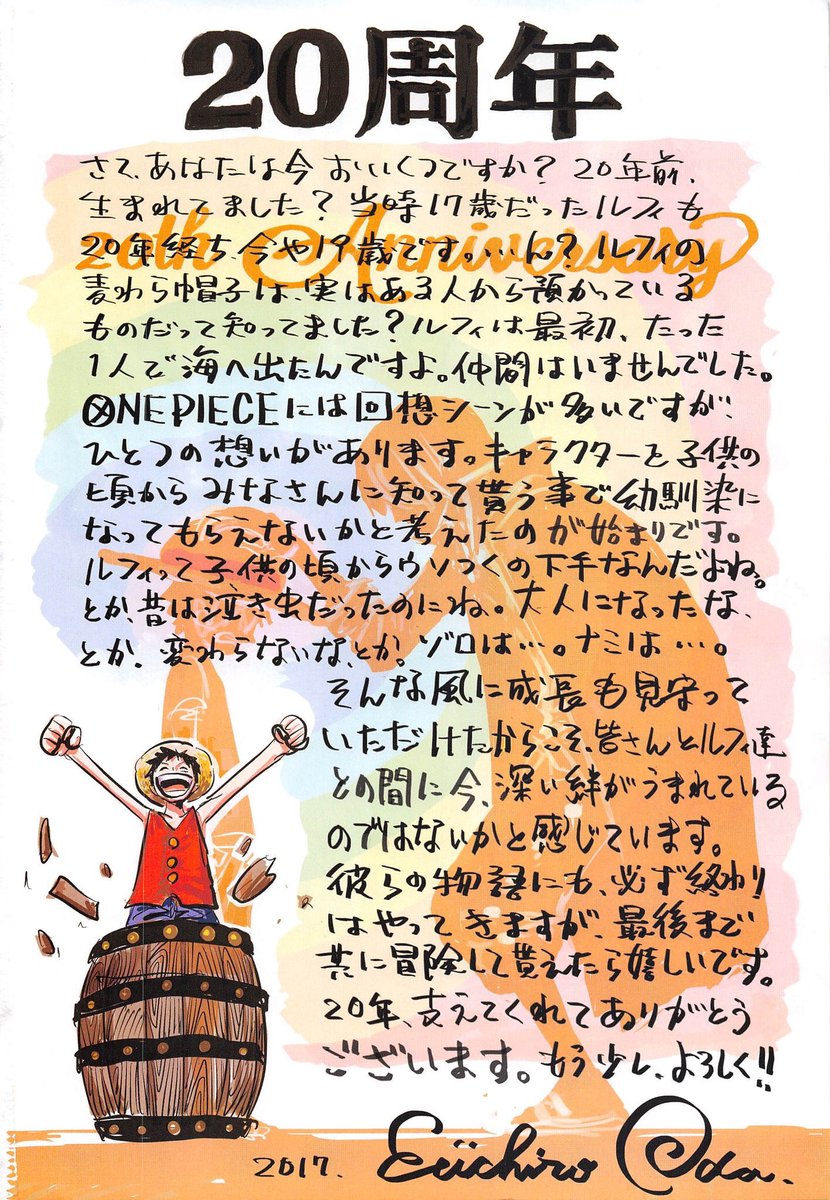 20周年
さて、あなたは今おいくつですか？20年前、
生まれてました？当時17歳だったルフィも
20年経ち、今や19歳です。…ん？ルフィの
20th Anniversary
麦わら帽子は、実はある人から預かっている
ものだって知ってました？ルフィは最初、たった
1人で海へ出たんですよ。仲間はいませんでした。
ONE PIECEには回想シーンが多いですが、
ひとつの想いがあります。キャラクターを子供の
頃からみなさんに知って貰う事で幼馴染に
なってもらえないかと考えたのが始まりです。
ルフィって子供の頃からウソつくの下手なんだよね。
とか、昔は泣き虫だったのにね。大人になったな、
とか、変わらないな、とか。ゾロは…。ナミは…。
そんな風に成長も見守って
いただけたからこそ、皆さんとルフィ達
との間に今、深い絆がうまれている
のではないかと感じています。
彼らの物語にも、必ず終わり
はやってきますが、最後まで
共に冒険して貰えたら嬉しいです。
20年、支えてくれてありがとう
ございます。もう少し、よろしく!!
2017. Eiichiro Oda.